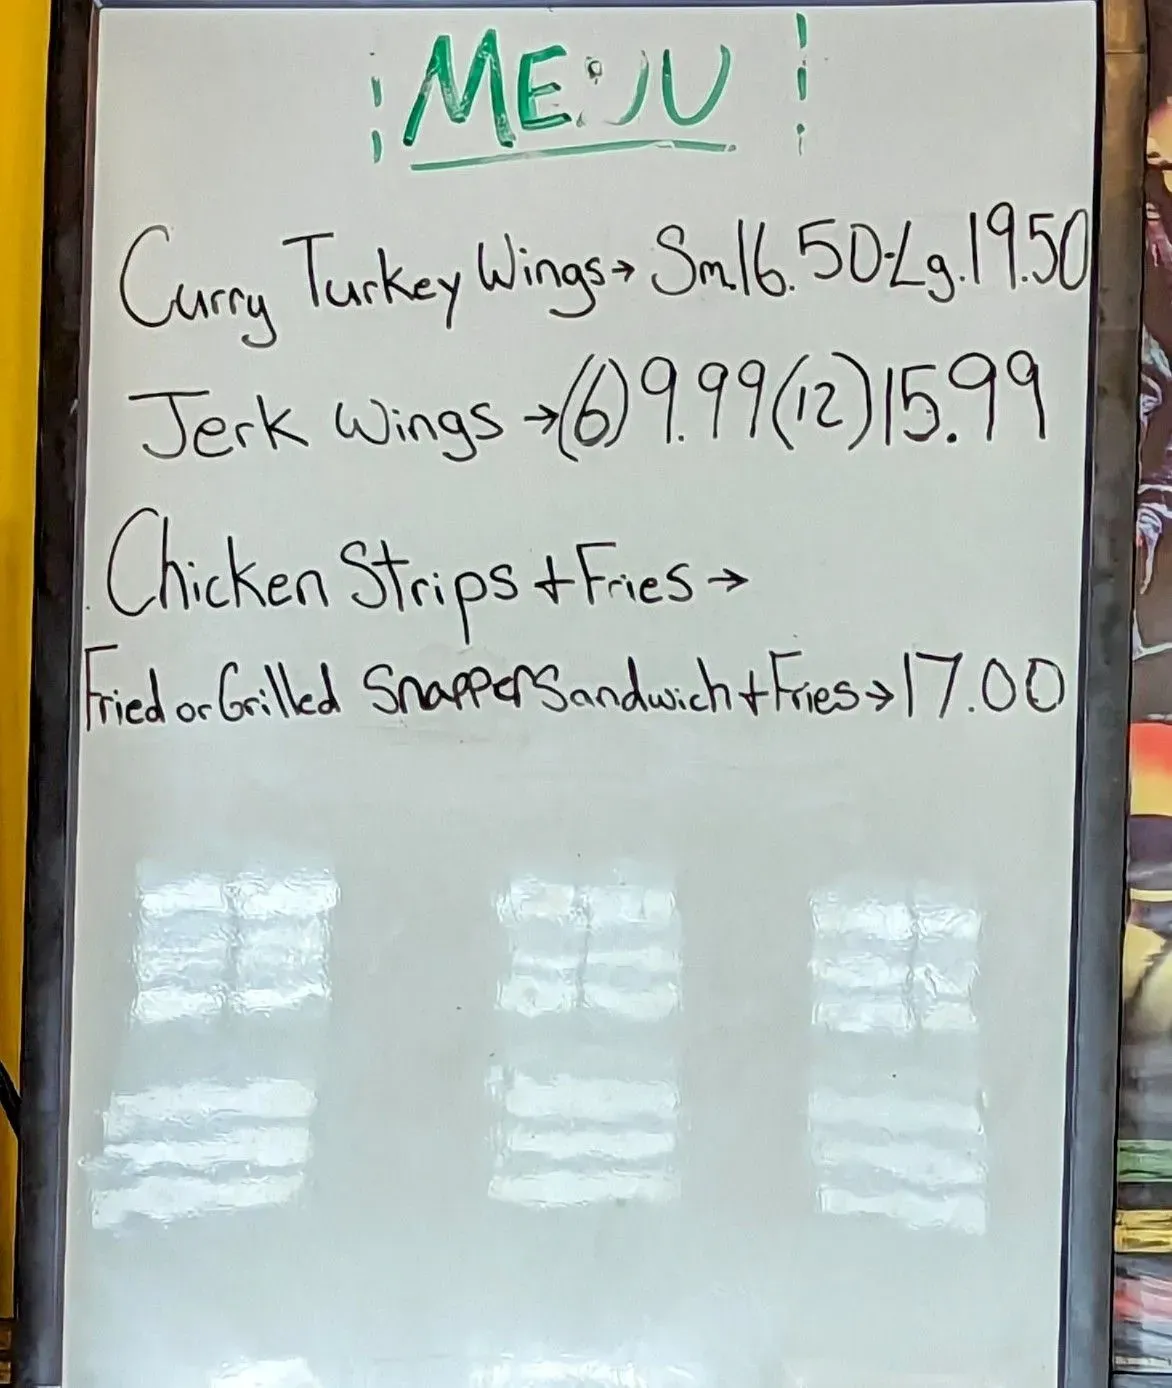 MENU
Curry Turkey Wings → Sm.16.50-Lg.19.50
Jerk Wings → (6) 9.99 (12) 15.99
Chicken Strips + Fries →
Fried or Grilled Snapper Sandwich + Fries → 17.00